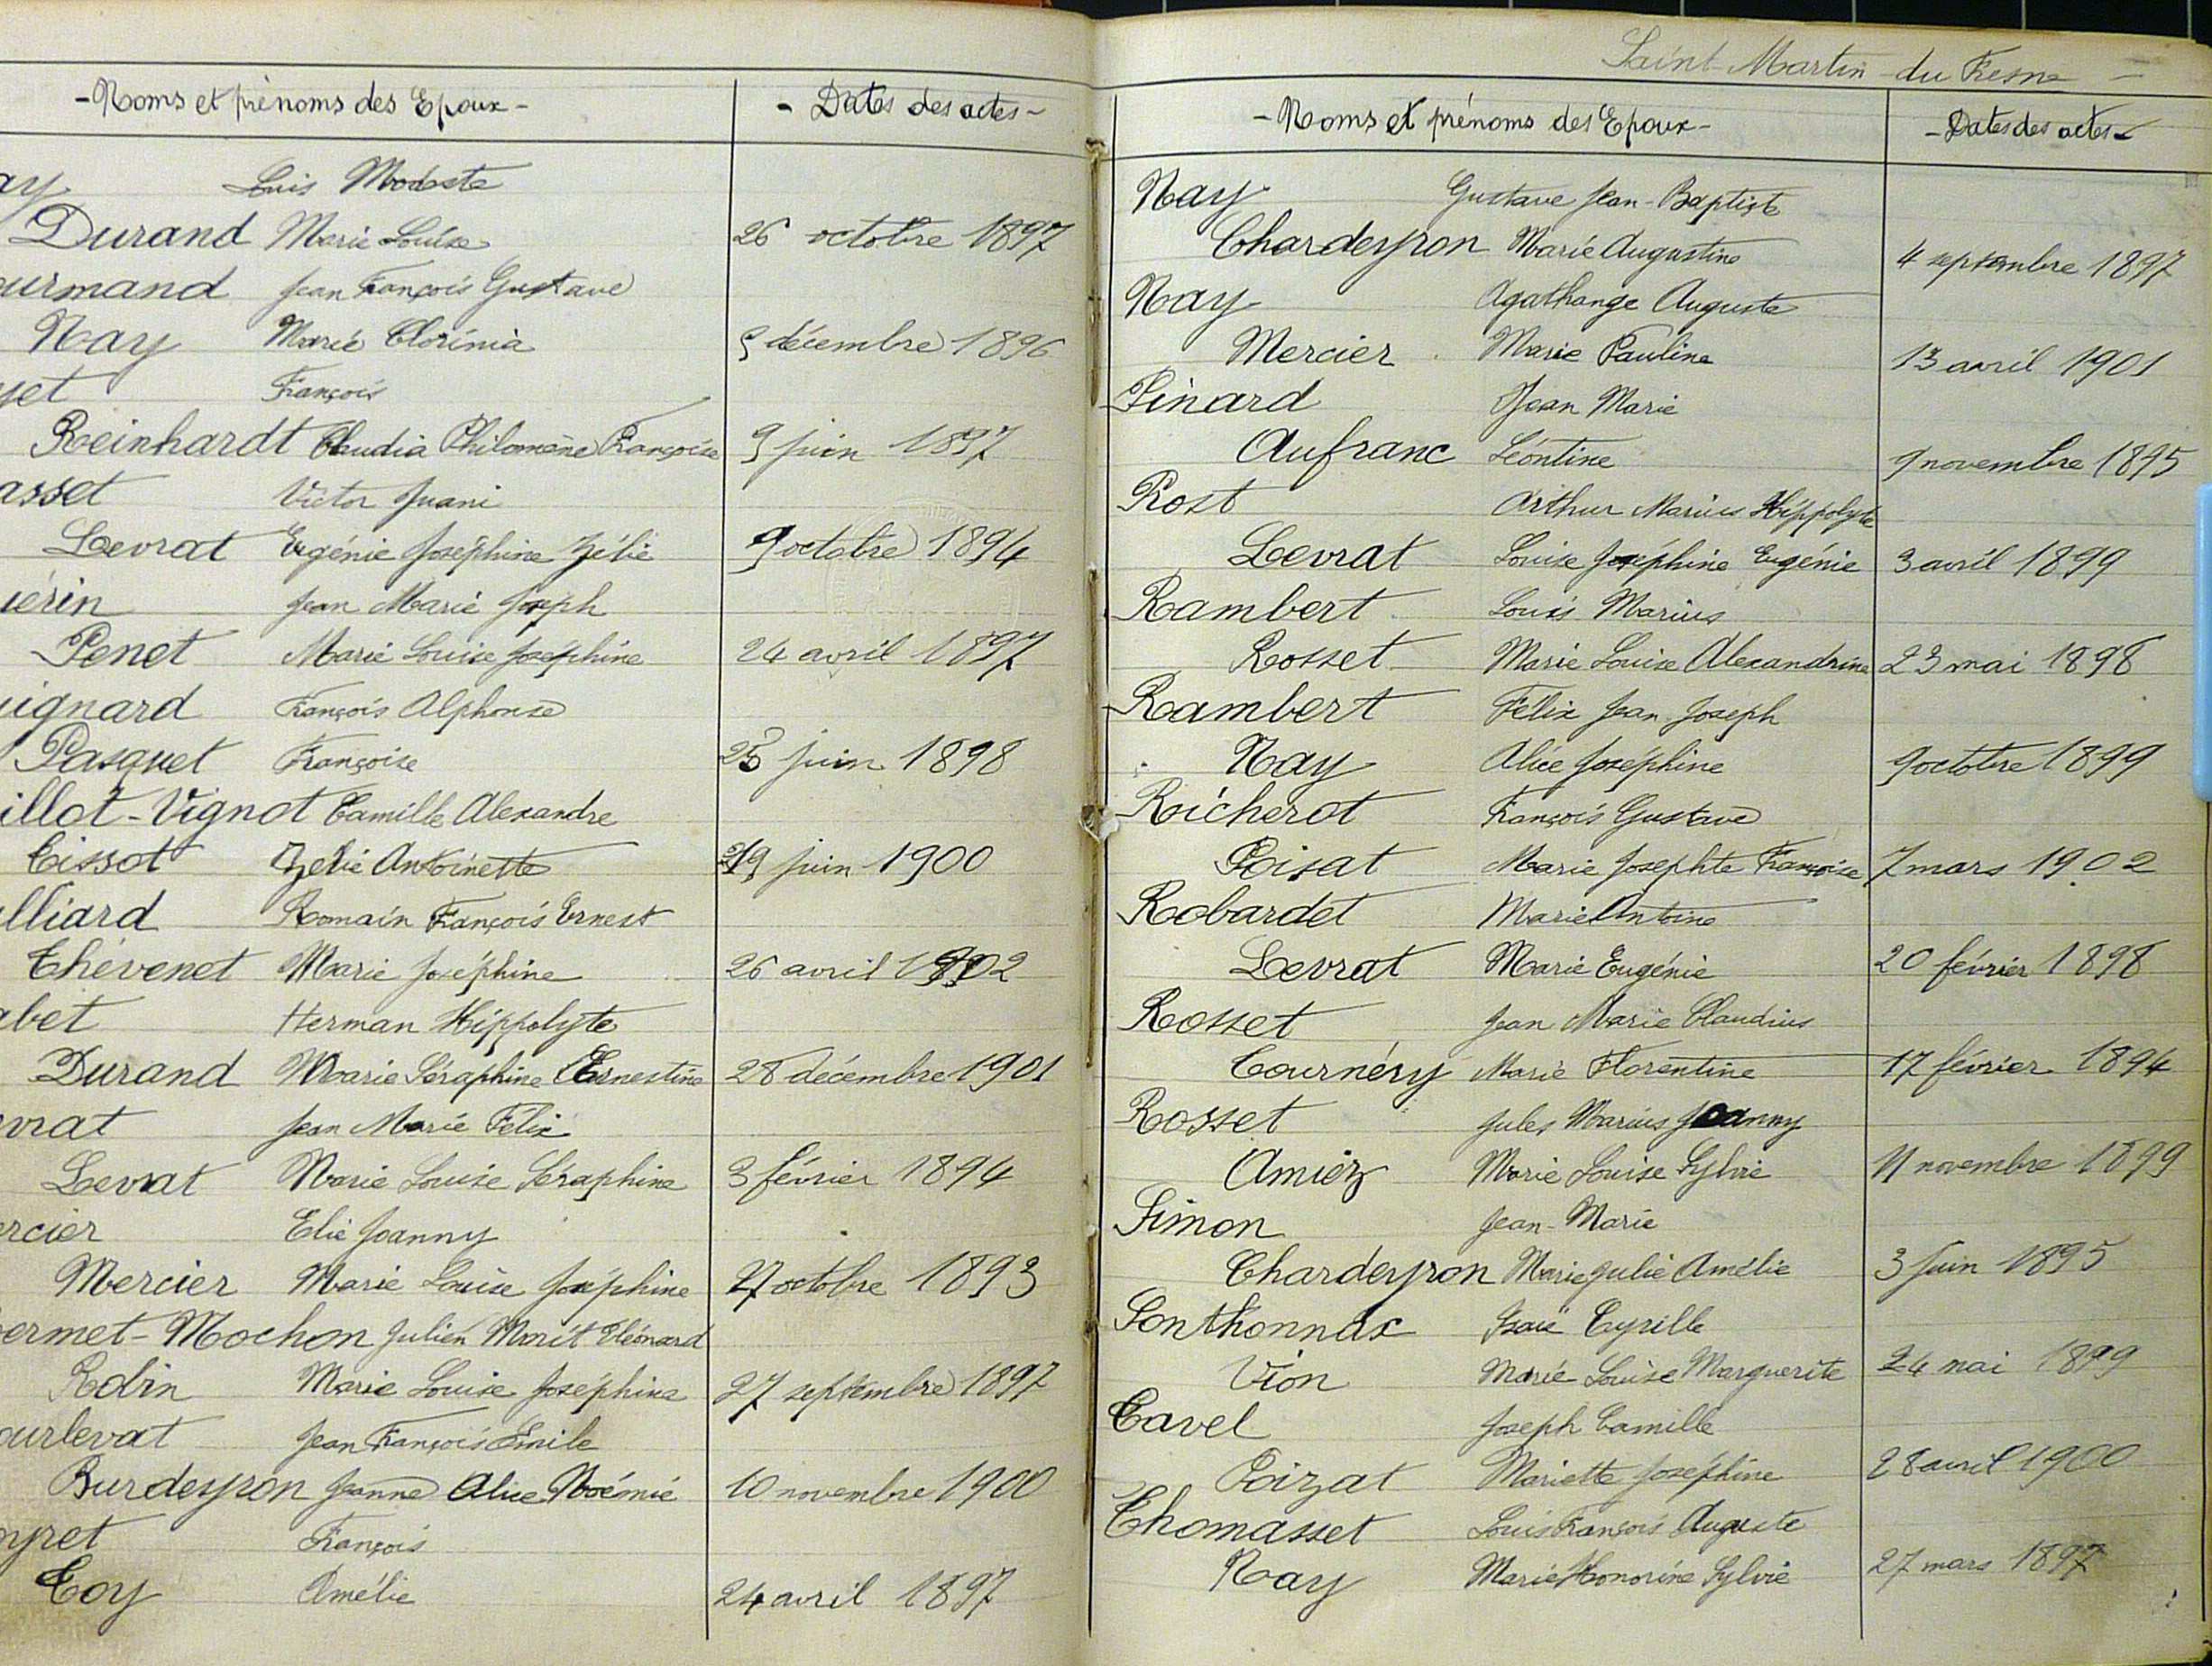 - Noms et prénoms des Epoux -
- Dates des actes -
ay Louis Modeste
Durand Marie Louise 26 octobre 1897
urmand Jean François Gustave
Nay Marie Clorinia 5 décembre 1896
yet François
Reinhardt Claudia Philomène Françoise 9 juin 1897
asset Victor Juani
Levrat Eugénie Joséphine Zélie 9 octobre 1894
uérin Jean Marie Joseph
Penet Marie Louise Joséphine 24 avril 1897
uignard François Alphonse
Pasquet Françoise juin 1898
illot-Vignot Camille Alexandre
Cissot Zélie Antoinette 19 juin 1900
lliard Romain François Ernest
Thévenet Marie Joséphine 26 avril 1902
abet Herman Hippolyte
Durand Marie Séraphine Ernestine 28 décembre 1901
vrat Jean Marie Félix
Levrat Marie Louise Séraphine 3 février 1894
ercier Elie Joanny
Mercier Marie Louise Joséphine 27 octobre 1893
ermet-Mochon Julien Marie Eléonard
Robin Marie Louise Joséphine 27 septembre 1897
ourlevat Jean François Emile
Burdeyron Jeanne Alice Noémie 10 novembre 1900
yret François
Coy Amélie 24 avril 1897
Saint-Martin-du Fresne -
- Noms et prénoms des Epoux -
- Dates des actes -
Nay Gustave Jean-Baptiste
Chardeyron Marie Augustine 4 septembre 1897
Nay Agathange Auguste
Mercier Marie Pauline 13 avril 1901
Pinard Jean Marie
Aufranc Léontine 9 novembre 1895
Prost Arthur Marius Hippolyte
Levrat Louise Joséphine Eugénie 3 avril 1899
Rambert Louis Marius
Rosset Marie Louise Alexandrine 23 mai 1898
Rambert Félix Jean Joseph
Nay Alice Joséphine 9 octobre 1899
Richerot François Gustave
Poisat Marie Josephte Françoise 7 mars 1902
Robardet Marie Antoine
Levrat Marie Eugénie 20 février 1898
Rosset Jean Marie Claudius
Tournéry Marie Florentine 17 février 1894
Rosset Jules Marius Joanny
Amiez Marie Louise Sylvie 11 novembre 1899
Simon Jean-Marie
Chardeyron Marie Julie Amélie 3 juin 1895
Sonthonnax Isaïe Cyrille
Vion Marie Louise Marguerite 24 mai 1899
Tavel Joseph Camille
Poizat Mariette Joséphine 28 avril 1900
Thomasset Louis François Auguste
Nay Marie Honorine Sylvie 27 mars 1897